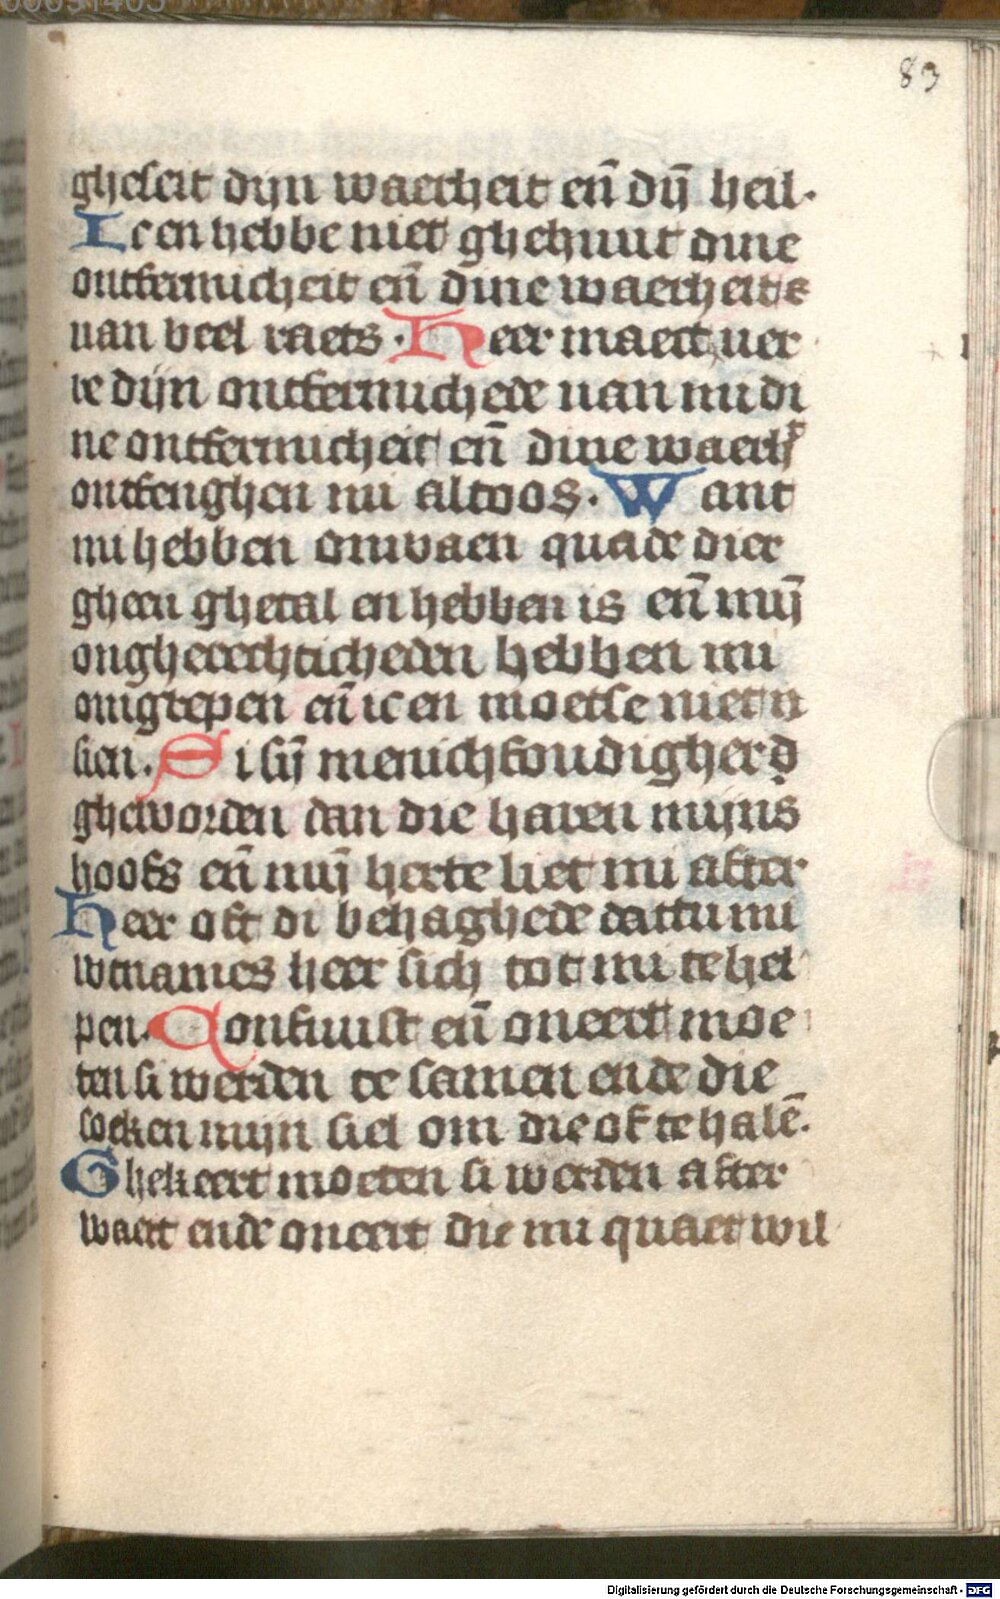 83
gheseit dijn waerheit en̄ dij̄ heil.
Ic en hebbe niet ghehuut dine
ontfermicheit en̄ dine waerheit
van veel raets. Heer maect ver
re dijn ontfermichede van mi di
ne ontfermicheit en̄ dine waerh
ontfenghen mi altoos. Want
mi hebben omvaen quade dier
gheen ghetal en hebben is en̄ mij̄
ongherechticheden hebben mi
omgrepen en̄ ic en moetse niet
sien. Si sij̄ menichfoudigher
gheworden dan die haren mijns
hoofs en̄ mij̄ herte liet mi after
Heer oft di behaghede dattu mi
wtnames heer sich tot mi te hel
pen. Confuust en̄ oneert moe
ten si werden te samen ende die
soeken mijn siel om die of te halē.
Ghekeert moeten si werden after
waert ende oneert die mi quaet wil
Digitalisierung gefördert durch die Deutsche Forschungsgemeinschaft - DFG